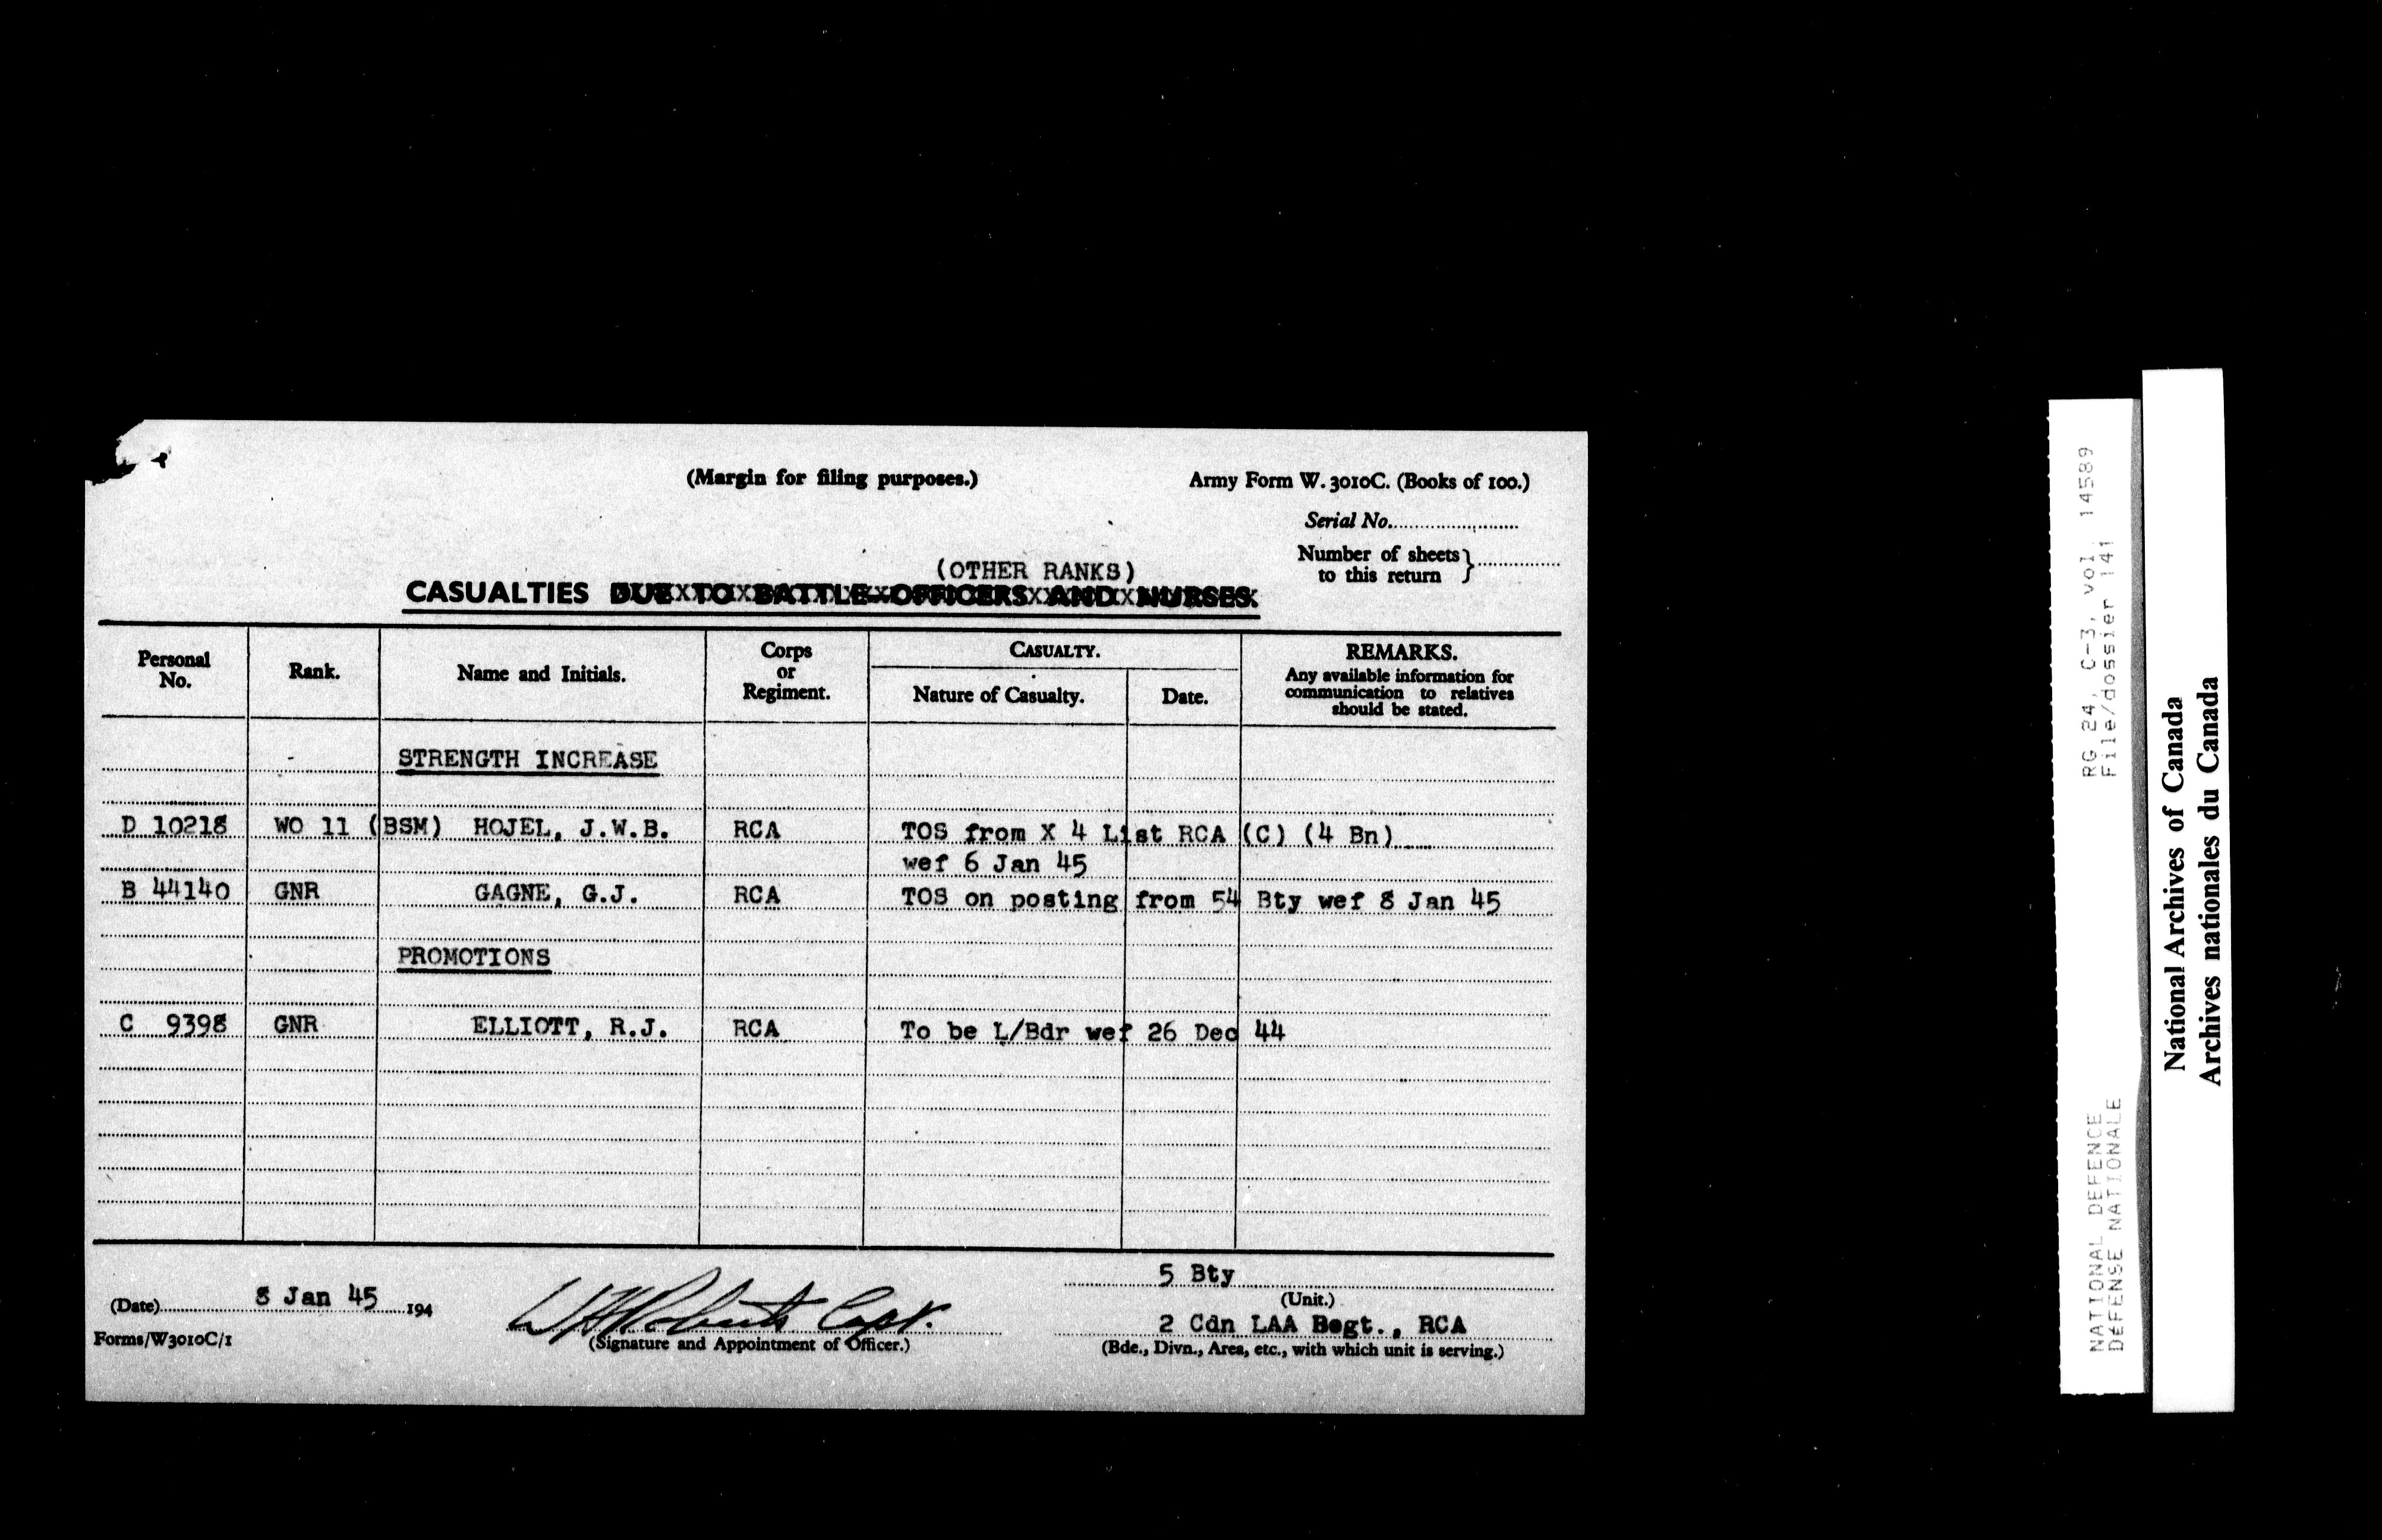 (Margin for filing purposes.)
Army Form W. 3010C. (Books of 100.)
Serial No.
Number of sheets } to this return
(OTHER RANKS)
CASUALTIES DUE TO BATTLE—OFFICERS AND NURSES.
Personal No.
Rank.
Name and Initials.
Corps or Regiment.
CASUALTY.
Nature of Casualty.
Date.
REMARKS.
Any available information for
communication to relatives
should be stated.
STRENGTH INCREASE
D 10218 WO 11 (BSM) HOJEL, J.W.B. RCA TOS from X 4 List RCA (C) (4 Bn)
wef 6 Jan 45
B 44140 GNR GAGNE, G.J. RCA TOS on posting from 54 Bty wef 8 Jan 45
PROMOTIONS
C 9398 GNR ELLIOTT, R.J. RCA To be L/Bdr wef 26 Dec 44
5 Bty
(Unit.)
(Date) 8 Jan 45 194
Roberts Capt.
2 Cdn LAA Regt., RCA
Forms/W3010C/1
(Signature and Appointment of Officer.)
(Bde., Divn., Area, etc., with which unit is serving.)
RG 24, C-3, vol. 14589
File/dossier 141
NATIONAL DEFENCE
DÉFENSE NATIONALE
National Archives of Canada
Archives nationales du Canada